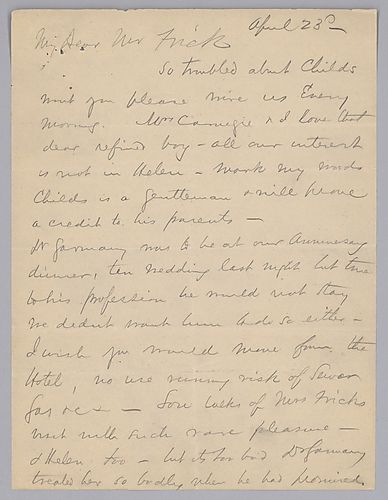 April 23d
My Dear Mr Frick
So troubled about Childs
wont you please wire us Every
morning. Mrs Carnegie & I love that
dear refined boy - all our interest
is not in Helen - mark my words
Childs is a gentleman & will prove
a credit to his parents -
Dr Garmany was to be at our Anniversary
dinner, tin wedding last night but true
to his profession he would not stay
we didnt want him to do so either -
I wish you would move from the
Hotel, no use running risk of Sewer
Gas &c & - Lou talks of Mrs Fricks
visit with such rare pleasure -
& Helen too - but its too bad Dr Garmany
treated her so badly when he had promised